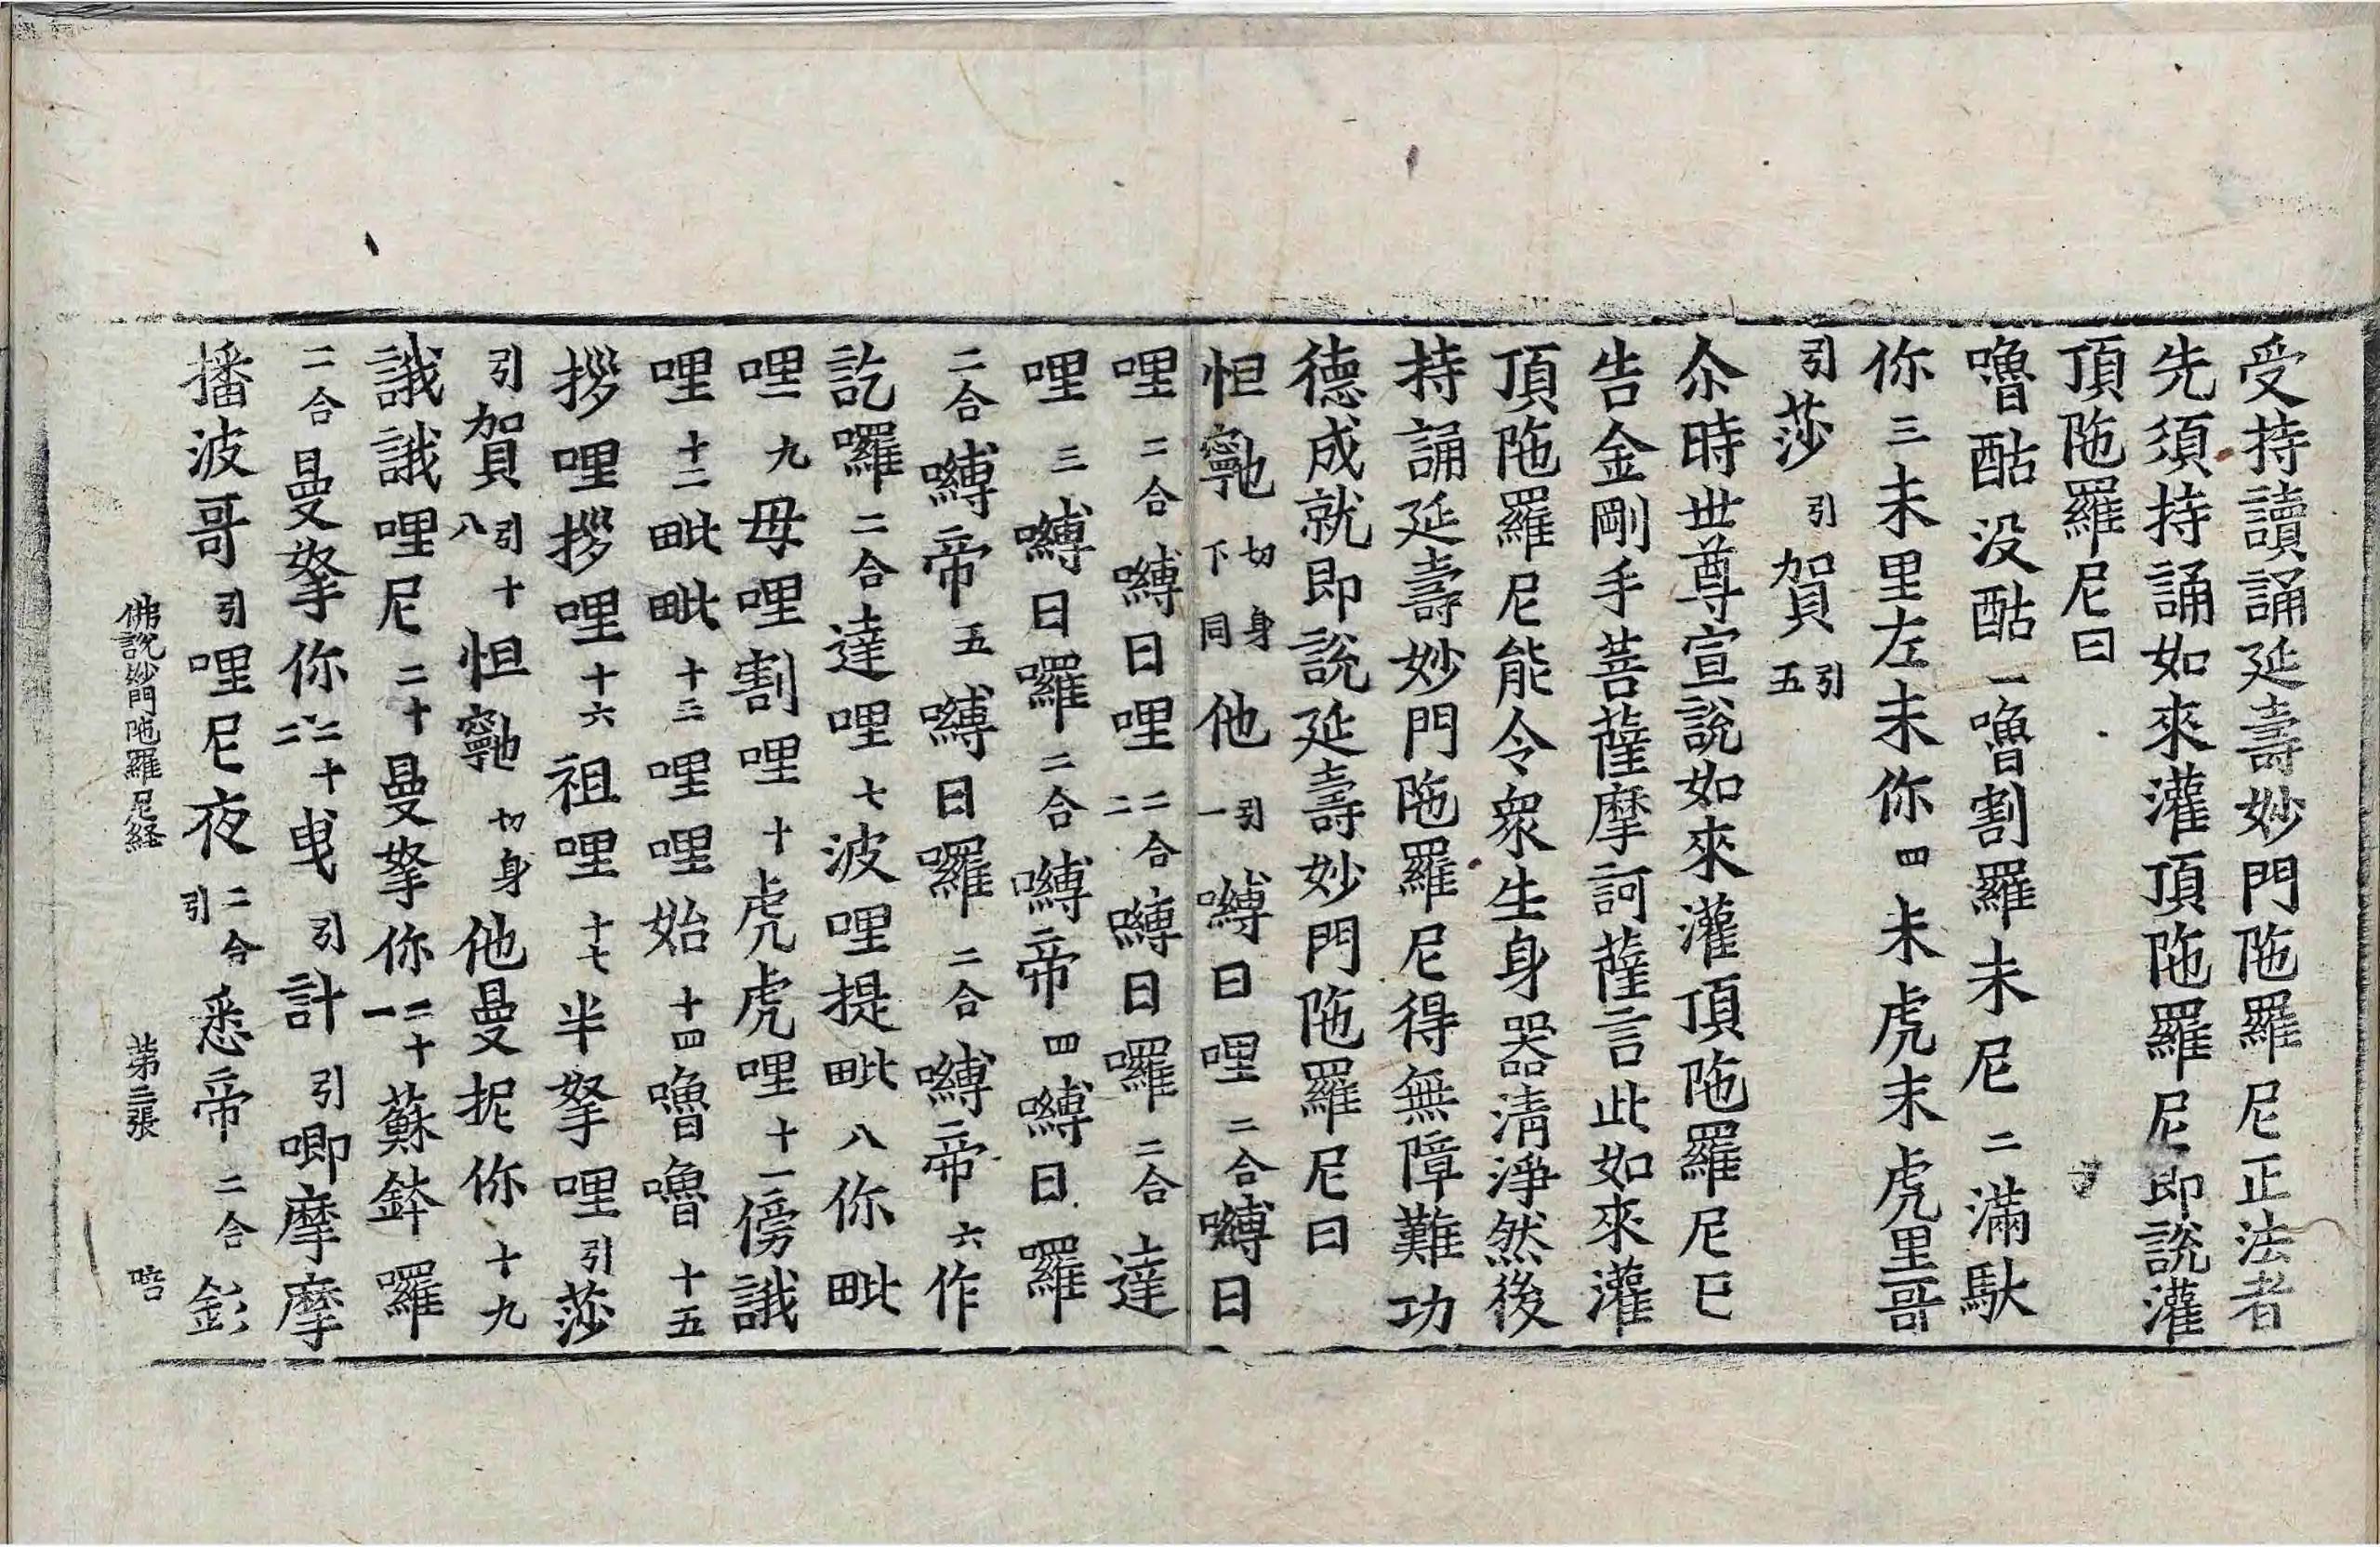 受持讀誦延壽妙門陁羅尼正法者
先須持誦如來灌頂陁羅尼即說灌
頂陁羅尼曰
嚕酤没酤一嚕割羅未尼二滿馱
你三未里左未你四未虎未虎里哥
引莎引賀引五
尒時世尊宣說如來灌頂陁羅尼已
告金剛手菩薩摩訶薩言此如來灌
頂陁羅尼能令衆生身器清淨然後
持誦延壽妙門陁羅尼得無障難功
德成就即說延壽妙門陁羅尼曰
怛䆻切身下同他引一嚩日哩二合嚩日
哩二合嚩日哩二合二嚩日囉二合達
哩三嚩日囉二合嚩帝四嚩日囉
二合嚩帝五嚩日囉二合嚩帝六作
訖囉二合達哩七波哩提毗八你毗
哩九毋哩割哩十虎虎哩十一傍誐
哩十二毗毗十三哩哩始十四嚕嚕十五
拶哩拶哩十六祖哩十七半拏哩引莎
引賀引十八怛䆻切身他曼抳你十九
誐誐哩尼二十曼拏你二十一蘇鉢囉
二合曼拏你二十二曵引計引唧摩摩
播波哥引哩尼夜二合引悉帝二合釤
佛說妙門陁羅尼経 苐三張 㖃